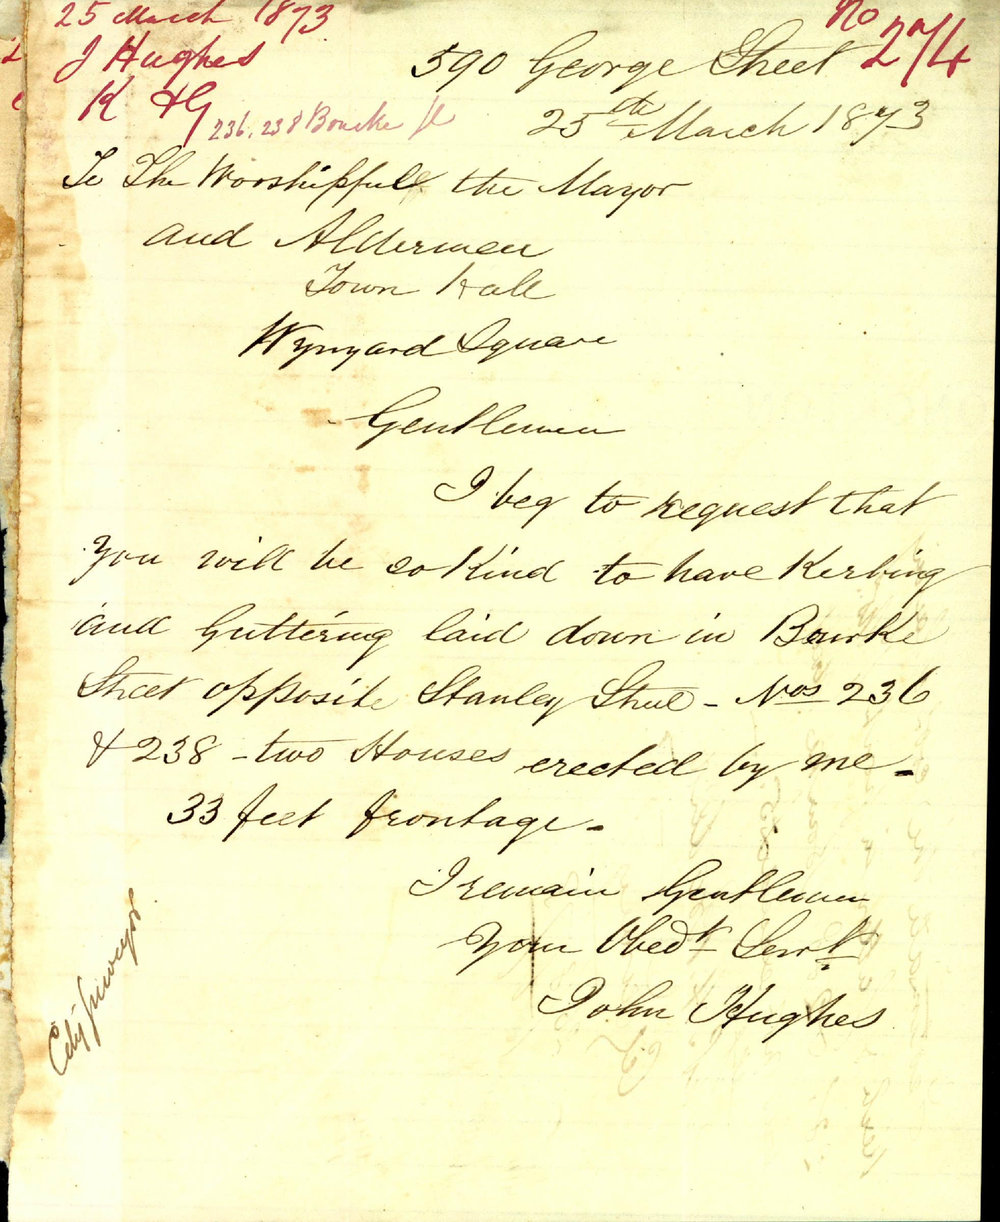 25 March 1873
J Hughes
K & G
236, 238 Bourke St
No 274
590 George Street
25th March 1873
To The Worshipfull the Mayor
and Aldermen
Town Hall
Wynyard Square
Gentlemen
I beg to request that
you will be so Kind to have Kerbing
and Guttering laid down in Bourke
Street opposite Stanley Street - Nos 236
& 238 - two Houses erected by me -
33 feet frontage -
I remain Gentlemen
Your Obedt Servt
John Hughes
City Surveyor